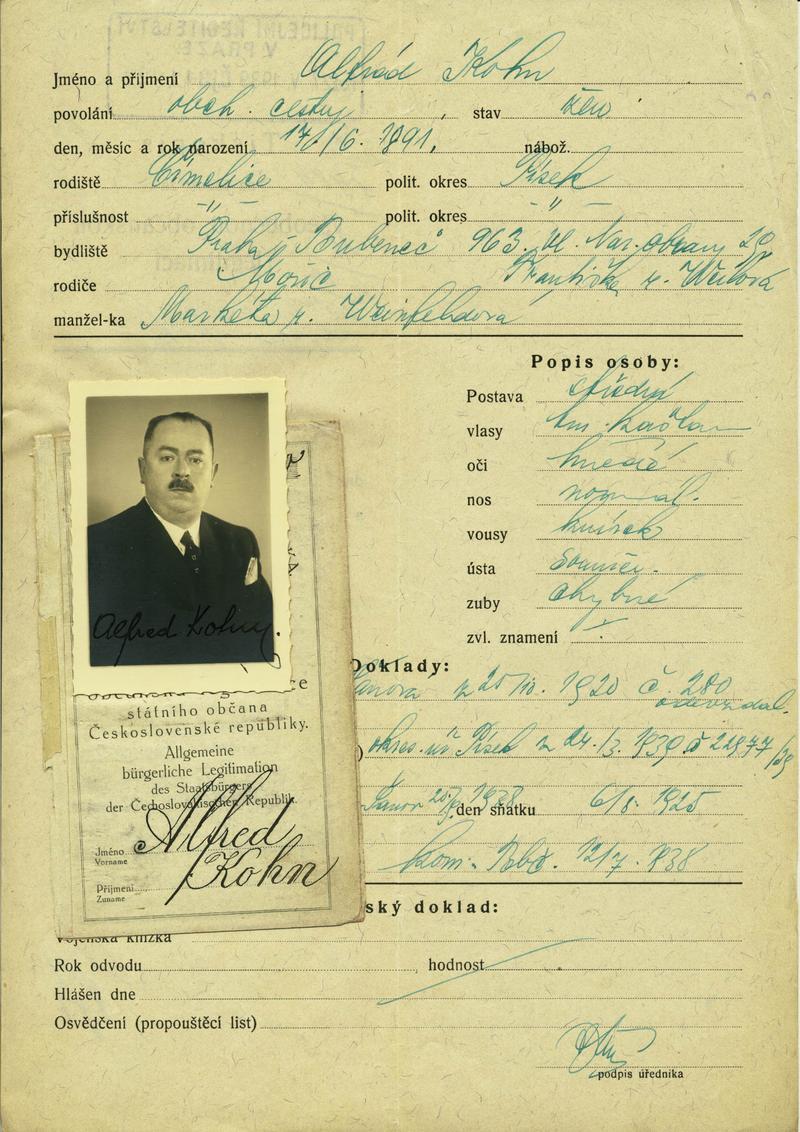 POLICEJNÍ ŘEDITELSTVÍ
V PRAZE
Jméno a příjmení Alfréd Kohn
povolání obch. cestuj. , stav žen
den, měsíc a rok narození 17/6. 1891. nábož.
rodiště Čimelice polit. okres Písek
příslušnost -"- polit. okres -"-
bydliště Praha - Bubeneč 963. Ul. Nár. obrany 29
rodiče Moric Františka r. Weilová
manžel-ka Markéta r. Weinfeldová
Popis osoby:
Postava střední
vlasy tm. kaštan
oči hnědé
nos normál.
vousy knírek
ústa souměr.
zuby chybné
zvl. znamení
Alfred Kohn.
Doklady:
z 25/10. 1920 č. 280
odevzdal.
) okres. úř. Písek z 24./3. 1939 č
den sňatku 6/8. 1925
kom. Bbč. 12/7. 938
státního občana
Československé republiky.
Allgemeine
bürgerliche Legitimation
des Staatsbürgers
der Čechoslovakischen Republik.
Jméno Alfred
Vorname
Příjmení Kohn
Zuname
ský doklad:
Vojenská knížka
Rok odvodu hodnost
Hlášen dne
Osvědčení (propouštěcí list)
podpis úředníka